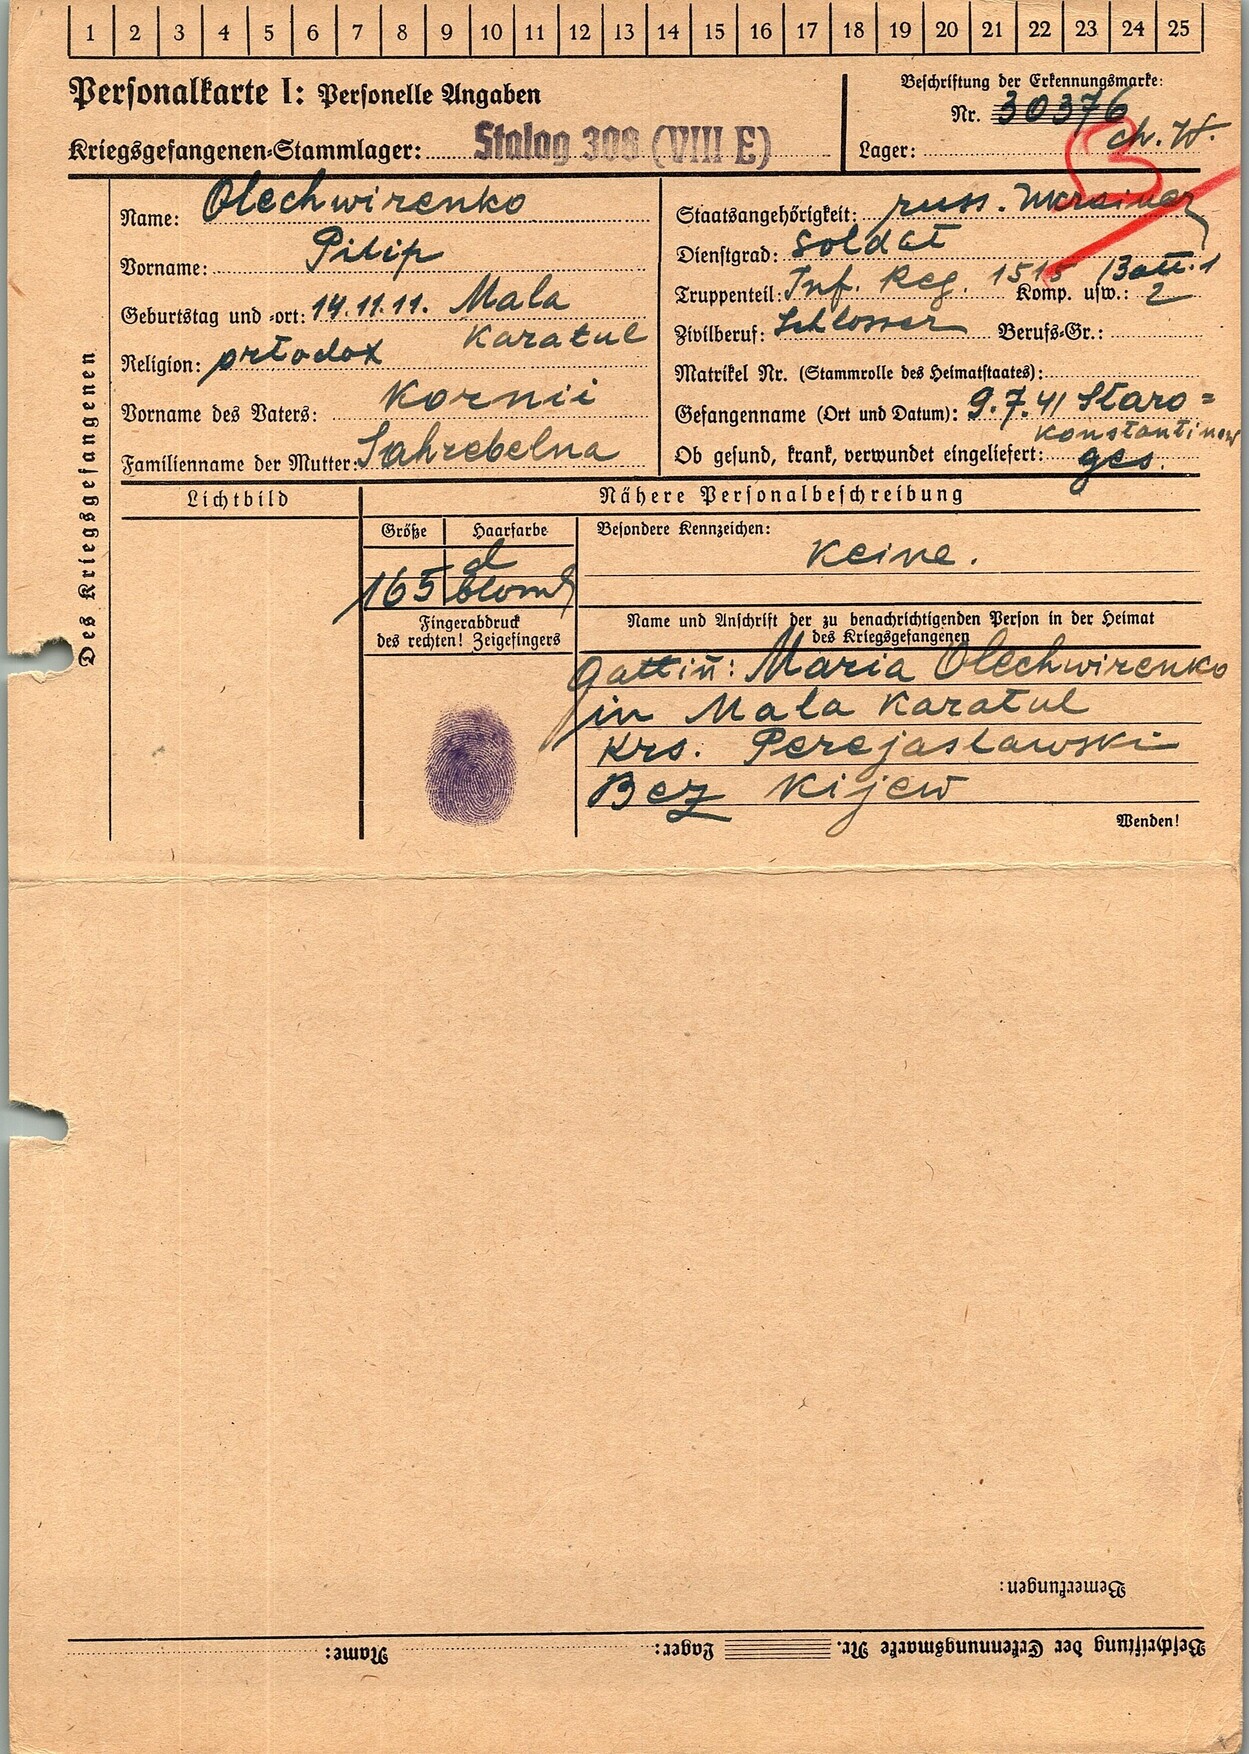 1 2 3 4 5 6 7 8 9 10 11 12 13 14 15 16 17 18 19 20 21 22 23 24 25
Personalkarte I: Personelle Angaben
Beschriftung der Erkennungsmarke:
Nr. 30376
Kriegsgefangenen-Stammlager: Stalag 308 (VIII E)
Lager:
Des Kriegsgefangenen
Name: Olechwirenko
Vorname: Pilip
Geburtstag und -ort: 14.11.11. Mala
Karatul
Religion: ortodox
Vorname des Vaters: Kornii
Familienname der Mutter: Sahrebelna
Staatsangehörigkeit: russ. Ukrainer
Dienstgrad: Soldat
Truppenteil: Inf. Reg. 1515 Batt. 1 Komp. usw.: 2
Zivilberuf: Schlosser Berufs-Gr.:
Matrikel Nr. (Stammrolle des Heimatstaates):
Gefangenname (Ort und Datum): 9.7.41 Staro=
konstantinow
Ob gesund, krank, verwundet eingeliefert: ges.
Lichtbild
Nähere Personalbeschreibung
Größe Haarfarbe
165 d blond
Besondere Kennzeichen:
Keine.
Fingerabdruck
des rechten! Zeigefingers
Name und Anschrift der zu benachrichtigenden Person in der Heimat
des Kriegsgefangenen
Gattin: Maria Olechwirenko
in Mala Karatul
Krs. Perejaslawski
Bez Kijew
Wenden!
Bemerkungen:
Beschriftung der Erkennungsmarke Nr. Lager: Name: